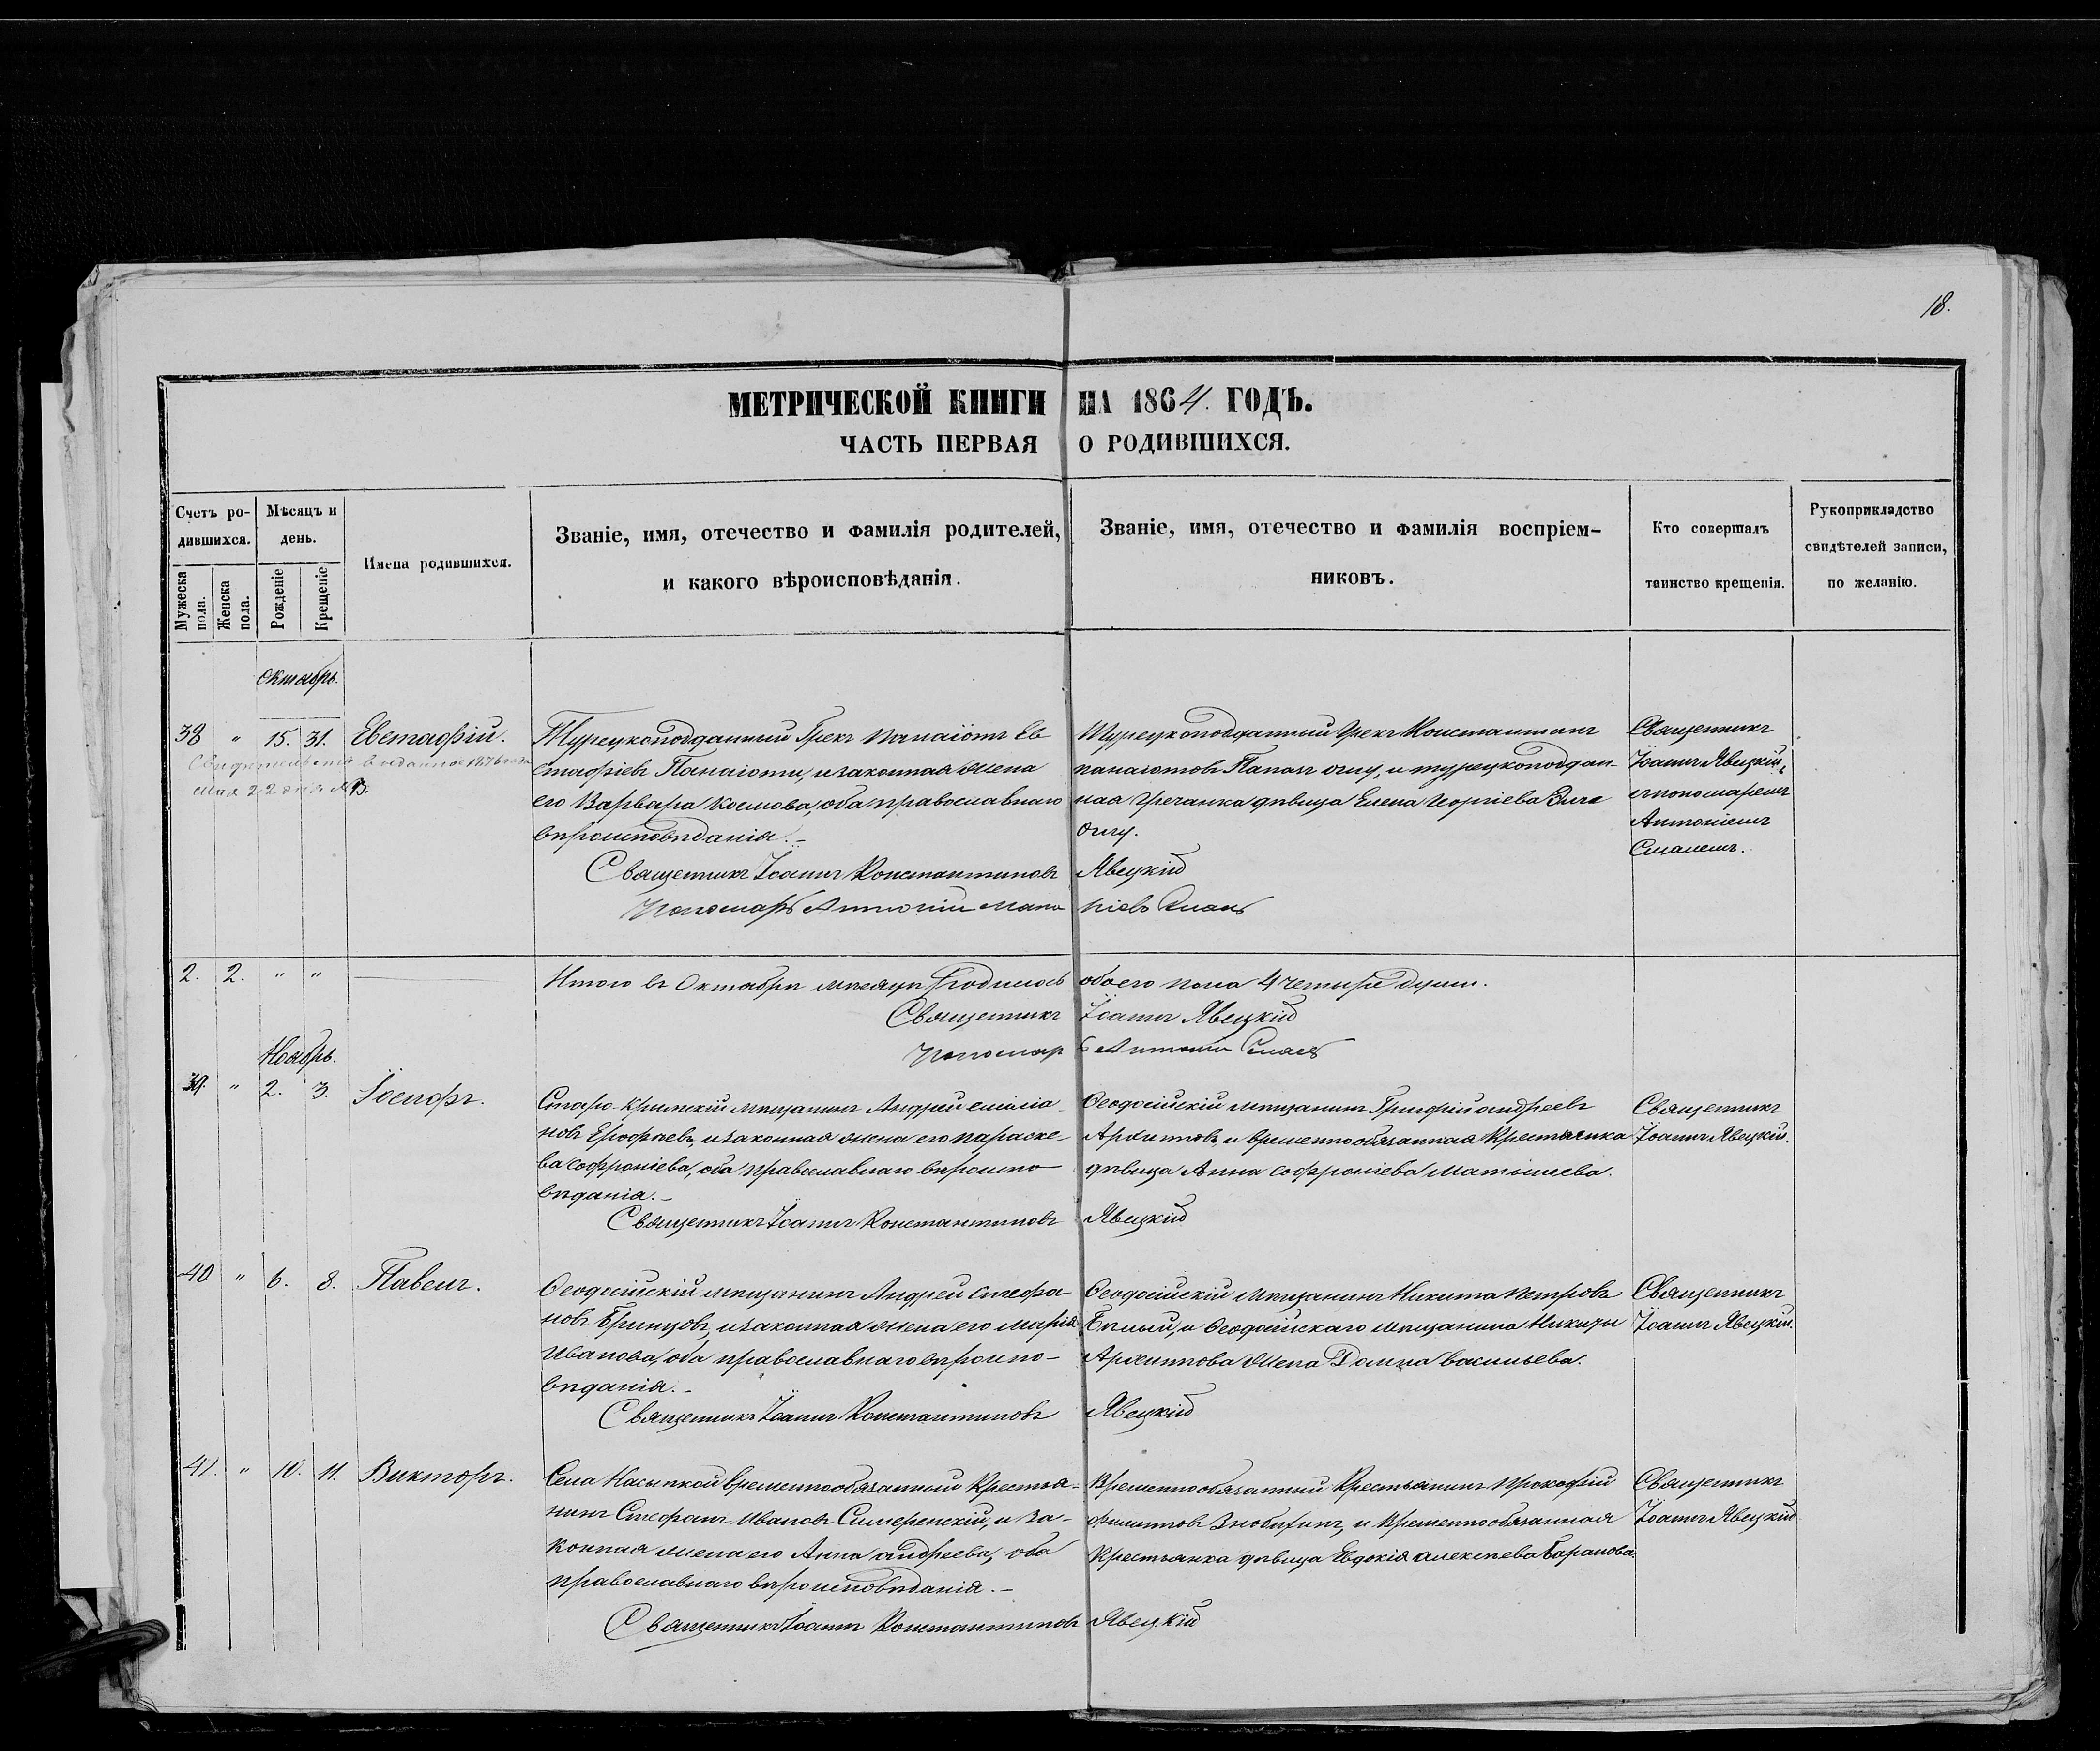 18.
МЕТРИЧЕСКОЙ КНИГИ НА 1864. ГОДЪ.
ЧАСТЬ ПЕРВАЯ О РОДИВШИХСЯ.
Счетъ ро-
дившихся.
Мужеска пола.
Женска пола.
Мѣсяцъ и
день.
Рожденіе
Крещеніе
Имена родившихся.
Званіе, имя, отечество и фамилія родителей,
и какого вѣроисповѣданія.
Званіе, имя, отечество и фамилія воспріем-
никовъ.
Кто совершалъ
таинство крещенія.
Рукоприкладство
свидѣтелей записи,
по желанію.
Октябрь.
38 " 15. 31. Евстафій.
Свидетельство выданное 1876 года
мая 22 дня №
Турецкоподданный Грекъ Панаіотъ Ев
стафіевъ Панаіоти, и законная жена
его Варвара Космова, оба православнаго
вѣроисповѣданія.-
Турецкоподданный Грекъ Константинъ
Панаіотовъ Папазъ оглу, и турецкоподдан-
ная Гречанка дѣвица Елена Георгіева
оглу.
Священникъ
Іоаннъ Явецкій,
съ пономаремъ
Антоніемъ
Священникъ Іоаннъ Константиновъ Явецкій
Пономарь Антоній
2. 2. " "
Итого въ Октябрѣ мѣсяцѣ родилось обоего пола 4 четыре души.
Священникъ Іоаннъ Явецкій
Пономарь Антоній
Ноябрь.
39. " 2. 3. Іосифъ.
Старо-Крымскій мѣщанинъ Андрей Емелиа-
новъ Ерофѣевъ, и законная жена его Параске-
ва Софроніева, оба православнаго вѣроиспо-
вѣданія.-
Ѳеодосійскій мѣщанинъ Григорій Андреевъ
Архиповъ, и временнообязанная Крестьянка
дѣвица Анна Софроніева Матюшева.
Священникъ
Іоаннъ Явецкій.
Священникъ Іоаннъ Константиновъ Явецкій
40 " 6. 8. Павелъ.
Ѳеодосійскій мѣщанинъ Андрей Стефа-
новъ Бринцовъ, и законная жена его Марія
Иванова, оба православнаго вѣроиспо-
вѣданія.-
Ѳеодосійскій мѣщанинъ Никита Петровъ
Бѣлый, и Ѳеодосійскаго мѣщанина Никиты
Архипова жена Домна Васильева.
Священникъ
Іоаннъ Явецкій.
Священникъ Іоаннъ Константиновъ Явецкій
41. " 10. 11. Викторъ.
Села Насыпкой временнообязанный Крестья-
нинъ Стефанъ Ивановъ Симеренскій, и за-
конная жена его Анна Андреева, оба
православнаго вѣроисповѣданія.-
Временнообязанный Крестьянинъ Прокофій
Филиповъ Знобихинъ, и временнообязанная
Крестьянка дѣвица Евдокія Алексѣева Баранова.
Священникъ
Іоаннъ Явецкій.
Священникъ Іоаннъ Константиновъ Явецкій